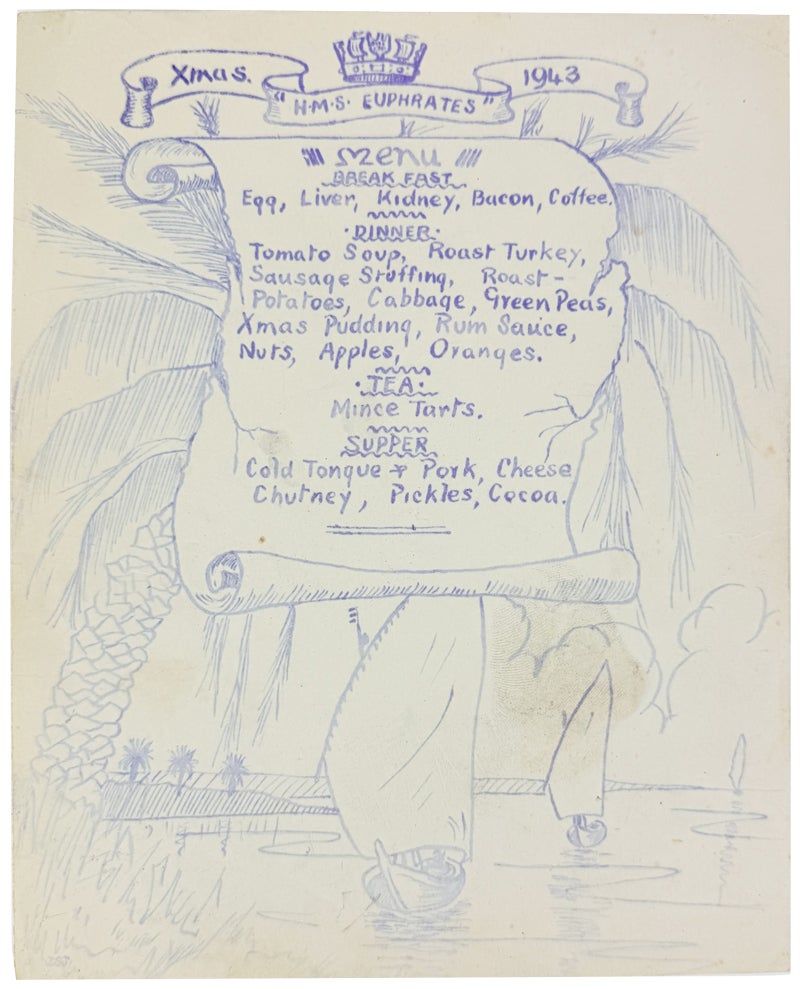 Xmas. 1943
"H·M·S· EUPHRATES"
Menu
BREAKFAST
Egg, Liver, Kidney, Bacon, Coffee.
·DINNER·
Tomato Soup, Roast Turkey,
Sausage Stuffing, Roast-
Potatoes, Cabbage, Green Peas,
Xmas Pudding, Rum Sauce,
Nuts, Apples, Oranges.
·TEA·
Mince Tarts.
SUPPER
Cold Tongue & Pork, Cheese
Chutney, Pickles, Cocoa.